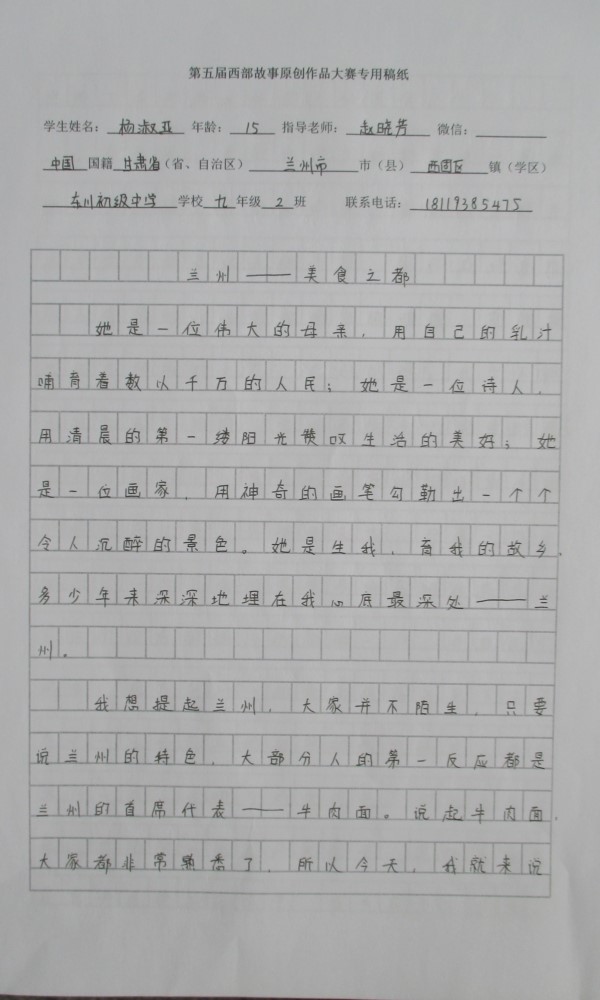 第五届西部故事原创作品大赛专用稿纸
学生姓名：杨淑亚 年龄：15 指导老师：赵晓芳 微信：
中国 国籍 甘肃省（省、自治区） 兰州市 市（县） 西固区 镇（学区）
东川初级中学 学校 九 年级 2 班 联系电话：18119385475
兰州——美食之都
她是一位伟大的母亲，用自己的乳汁
哺育着数以千万的人民；她是一位诗人，
用清晨的第一缕阳光赞叹生活的美好；她
是一位画家，用神奇的画笔勾勒出一个个
令人沉醉的景色。她是生我，育我的故乡，
多少年来深深地埋在我心底最深处——兰
州。
我想提起兰州，大家并不陌生，只要
说兰州的特色，大部分人的第一反应都是
兰州的首席代表——牛肉面。说起牛肉面，
大家都非常熟悉了，所以今天，我就来说